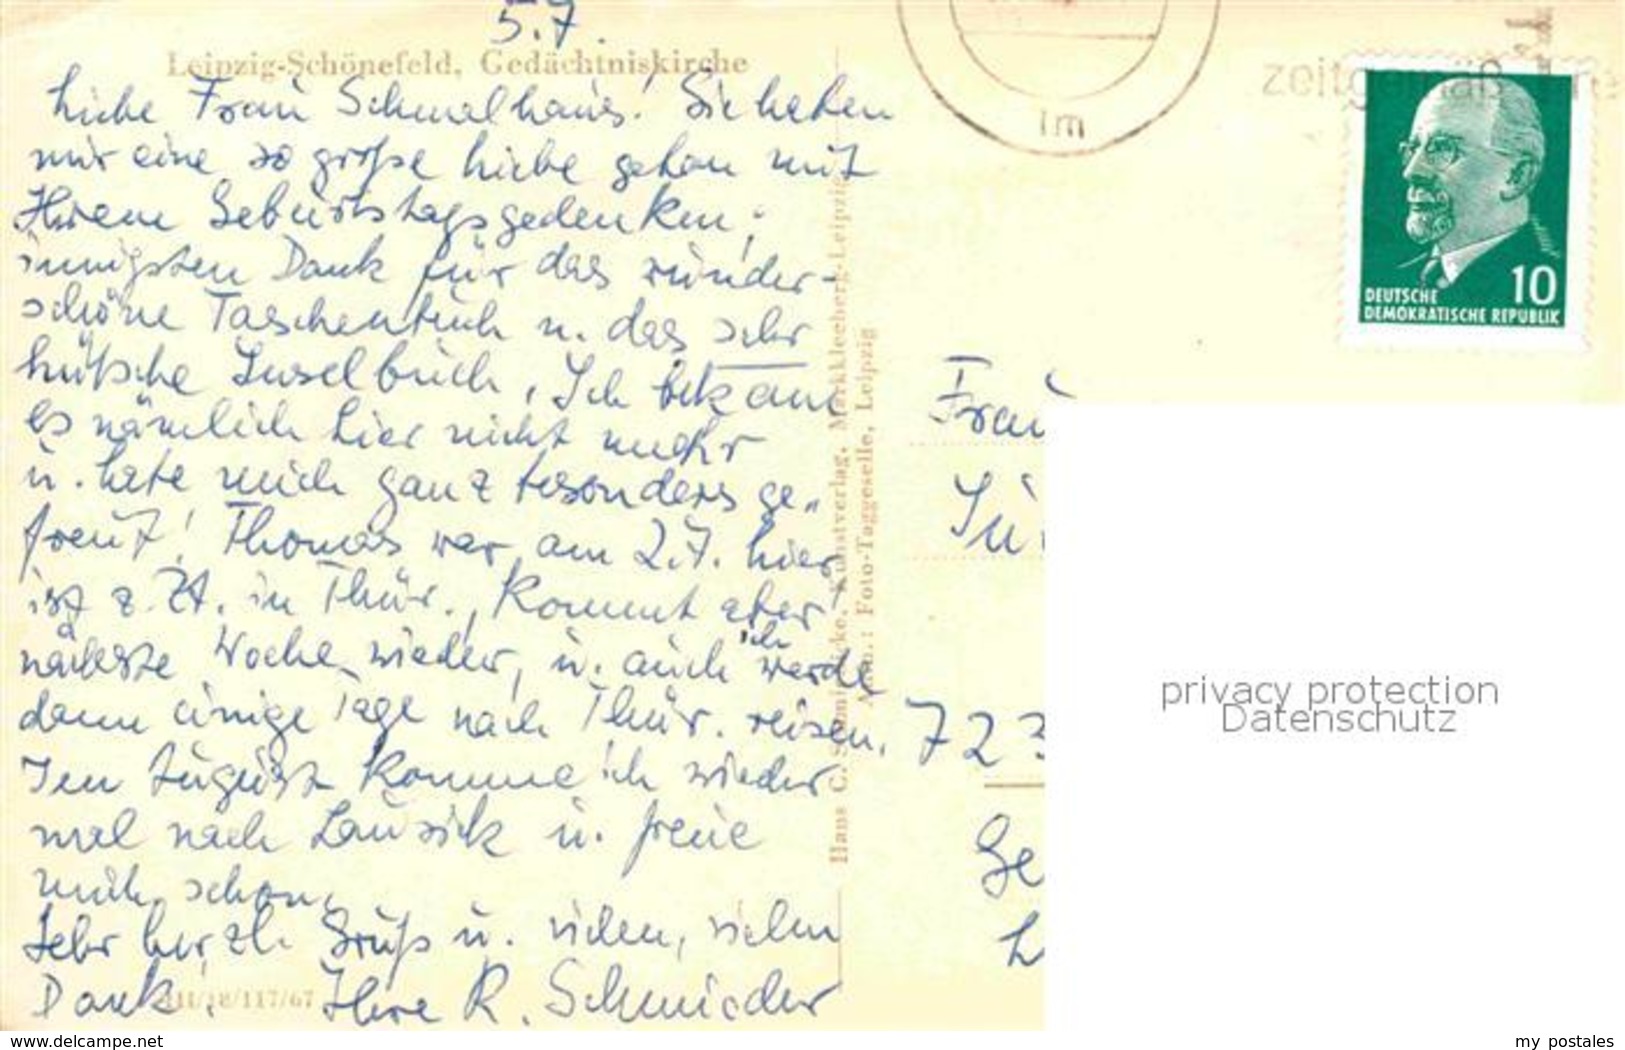 5.7.
Leipzig-Schönefeld, Gedächtniskirche
Liebe Frau Schmalhaus! Sie haben
mir eine so große Liebe getan mit
Ihrem Geburtstagsgedenken;
innigsten Dank für das wunder-
schöne Taschentuch u. das sehr
hübsche Inselbuch, Ich bekam
es nämlich hier nicht mehr
u. habe mich ganz besonders ge-
freut! Thomas war am 2.7. hier
ist z. Zt. in Thür., kommt aber
nächste Woche wieder, u. auch ich werde
dann einige Tage nach Thür. reisen.
Im August komme ich wieder
mal nach Lausick u. freue
mich schon.
Sehr herzl. Gruß u. vielen, vielen
Dank! Ihre R. Schmieder
III/18/117/67
Hans C. Schmiedicke, Kunstverlag, Markkleeberg-Leipzig
Aufn.: Foto-Taggeselle, Leipzig
im
zeitgemäß
10
DEUTSCHE
DEMOKRATISCHE REPUBLIK
Frau
723
Ge
L
privacy protection
Datenschutz
www.delcampe.net
my_postales